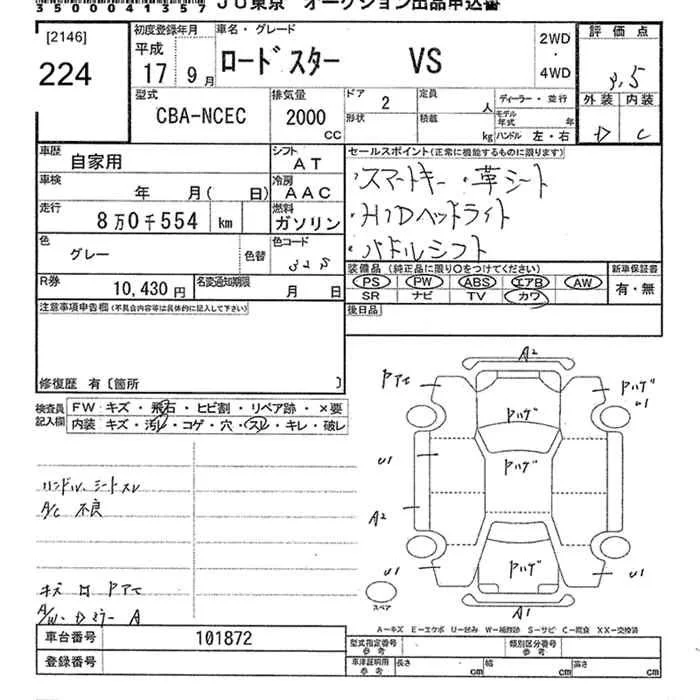 35000413571 JU東京 オークション出品申込書
[2146]
224
初度登録年月
平成
17 9月
車名・グレード
ロードスター VS
2WD
・
4WD
評価点
3.5
外装 内装
D C
型式
CBA-NCEC
排気量
2000
CC
ドア 2
定員 人
ディーラー・並行
形状
積載 kg
モデル年式 年
ハンドル 左・右
車歴
自家用
シフト
AT
車検
年 月( 日)
冷房
AAC
走行
8万0千554 km
燃料
ガソリン
色
グレー
色替
色コード
R券
10,430円
名変通知期限
月 日
セールスポイント(正常に機能するものに限ります)
・スマートキー ・革シート
・HIDヘッドライト
・パドルシフト
装備品 (純正品に限り○をつけてください)
PS PW ABS エアB AW
SR ナビ TV カワ
新車保証書
有・無
後日品
注意事項申告欄(不具合内容等は具体的に記入して下さい)
修復歴 有〔箇所 〕
検査員記入欄
FW キズ・飛石・ヒビ割・リペア跡・×要
内装 キズ・汚レ・コゲ・穴・スレ・キレ・破レ
ハンドル、シートスレ
A/C 不良
キズ 凹 Pアセ
A/W・Dミラー A
A2
Pアセ
Pハゲ
U1
Pハゲ
U1
Pハゲ
A2
U1
Pハゲ
U1
A1
スペア
A-キズ E-エクボ U-凹み W-補修跡 S-サビ C-腐食 XX-交換済
車台番号 101872
登録番号
型式指定番号
参考
類別区分番号
参考
車庫証明用
参考
長さ cm 幅 cm 高さ cm